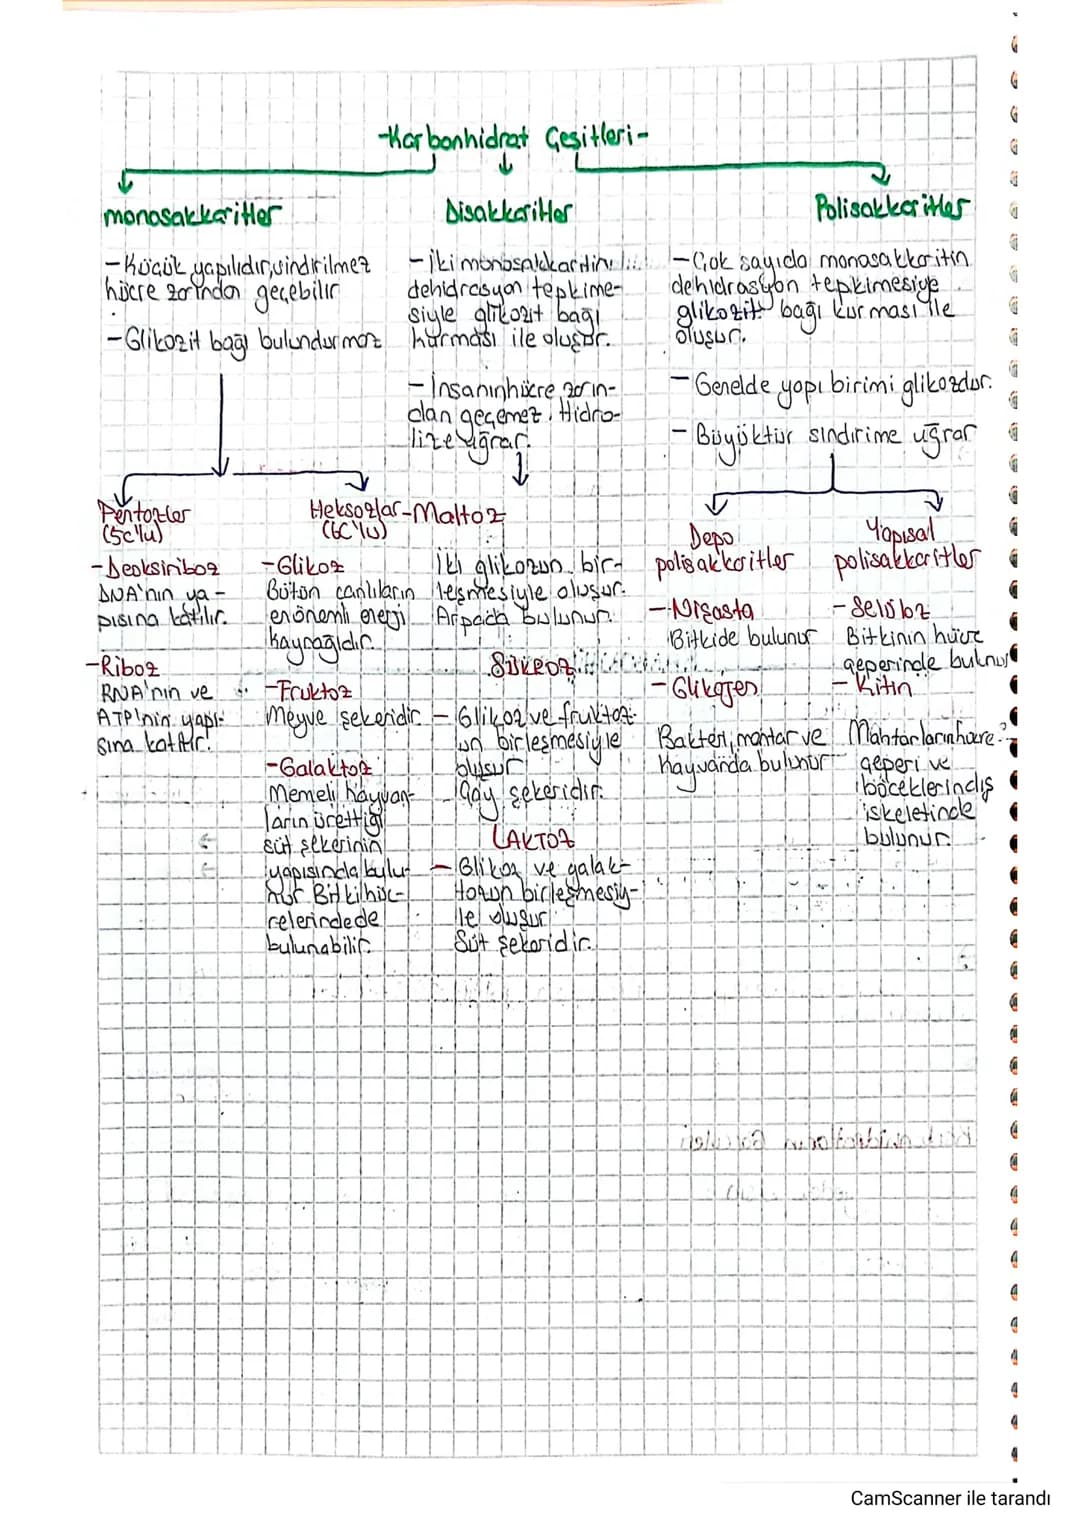 -Karbonhidrat Çeşitleri-
monosakkaritler
-Küçük yapılıdır, sindirilmez
hücre zarından geçebilir
-Glikozit bağı bulundurmaz
Pentozlar
(5c'lu)
-Deoksiriboz
DNA'nın ya-
pısına katılır.
-Riboz
RNA'nın ve
ATP'nin yapı-
sına katılır.
Heksozlar
(6C'lu)
-Glikoz
Bütün canlıların
en önemli enerji
kaynağıdır.
-Fruktoz
Meyve şekeridir
-Galaktoz
Memeli hayvan-
ların ürettiği
süt şekerinin
yapısında bulu-
nur Bitki hüc-
relerinde de
bulunabilir.
Disakkaritler
-İki monosakkaritin
dehidrasyon tepkime-
siyle glikozit bağı
kurması ile oluşur.
-İnsanın hücre zarın-
dan geçemez. Hidro-
lize uğrar.
-Maltoz
İki glikozun bir-
leşmesiyle oluşur.
Arpada bulunur.
SÜKROZ
-Glikoz ve fruktoz-
un birleşmesiyle
oluşur
Çay şekeridir.
LAKTOZ
-Glikoz ve galak-
tozun birleşmesiy-
le oluşur
Süt şekeridir.
Polisakkaritler
-Çok sayıda monosakkaritin
dehidrasyon tepkimesiye
glikozit bağı kurması ile
oluşur.
-Genelde yapı birimi glikozdur.
-Büyüktür sindirime uğrar
Depo
polisakkaritler
-Nişasta
Bitkide bulunur
-Glikojen
Bakteri, mantar ve
hayvanda bulunur
Yapısal
polisakkaritler
-Selüloz
Bitkinin hücre
çeperinde bulunur
-Kitin
Mantarların hücre
çeperi ve
böceklerin dış
iskeletinde
bulunur.
CamScanner ile tarandı